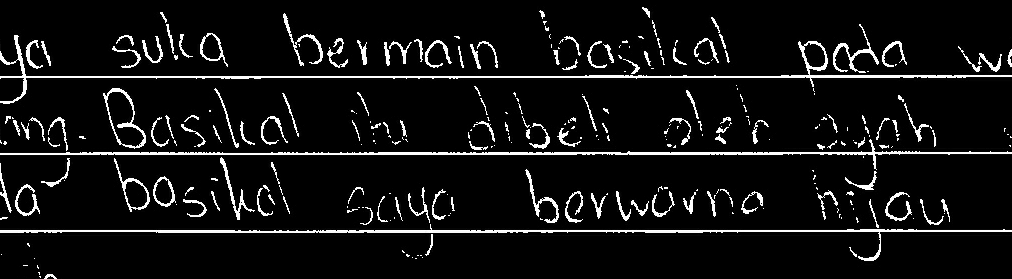 ya suka bermain basikal pada
ang. Basikal itu dibeli oleh ayah
da basikal saya berwarna hijau